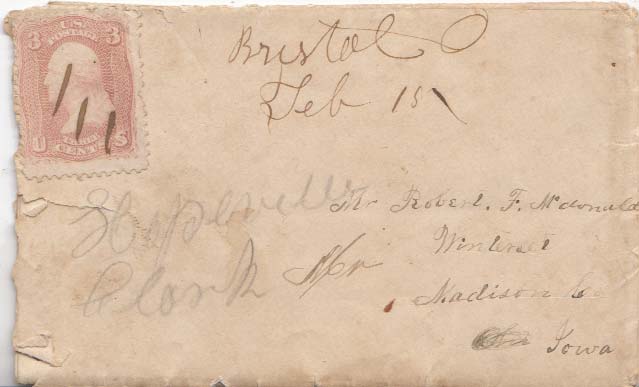 3 U.S. 3
POSTAGE
U THREE S
CENTS
Bristol
Feb 15
Hopeville
Clark
Mr
Mr Robert. F. Mcdonald
Winterset
Madison Co
Iowa